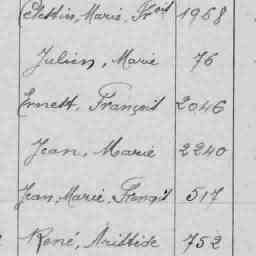 Célestin, Marie, Froit 1968
Julien, Marie 76
Ernest, François 2046
Jean, Marie 2240
Jean, Marie, François 517
René, Aristide 752